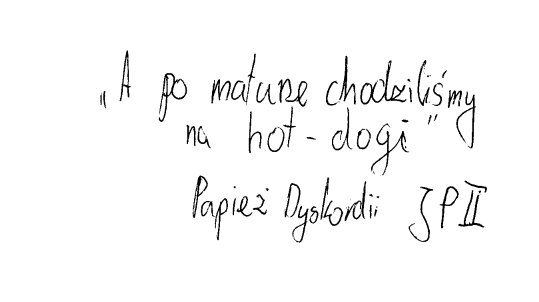 „A po maturze chodziliśmy
na hot-dogi”
Papież Dyskordii JP II